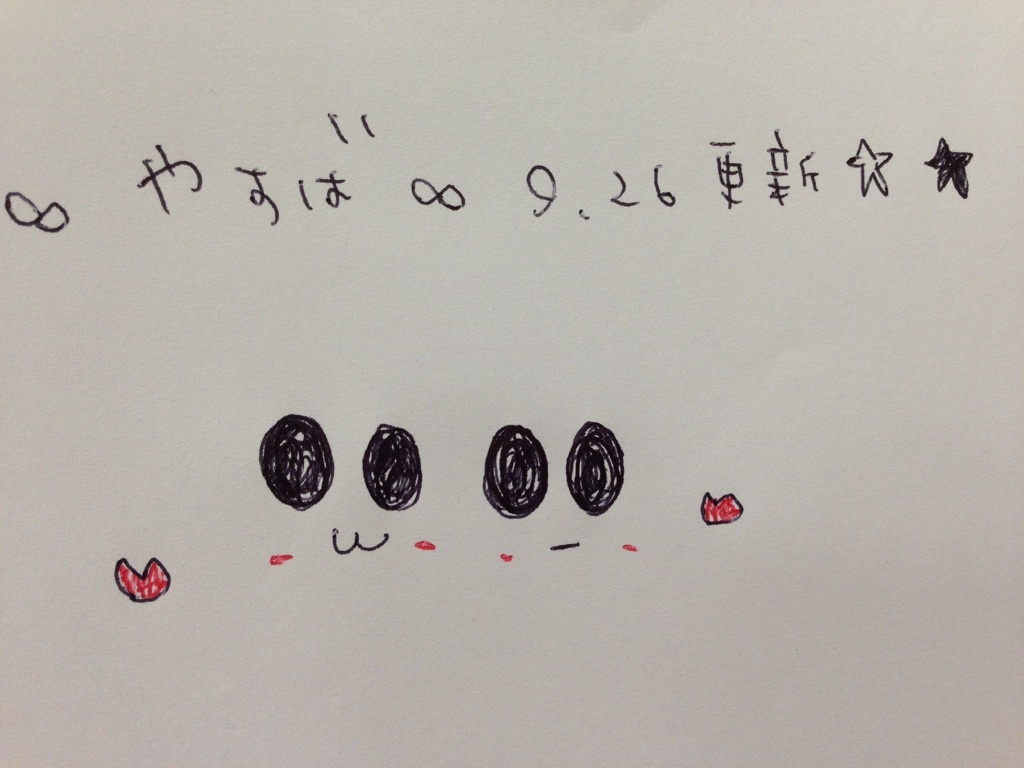 ∞ やすば ∞ 9.26 更新☆★